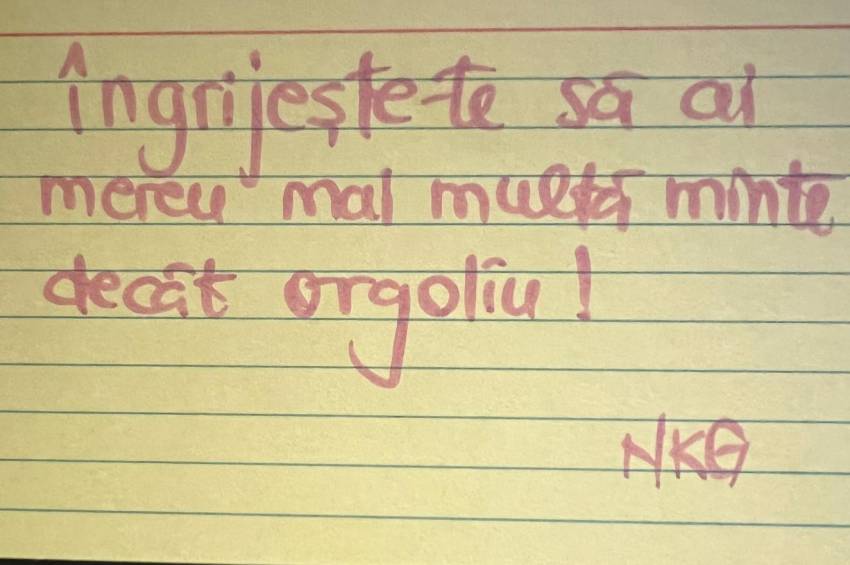 Îngrijește-te să ai
mereu mai multă minte
decât orgoliu!
NKG